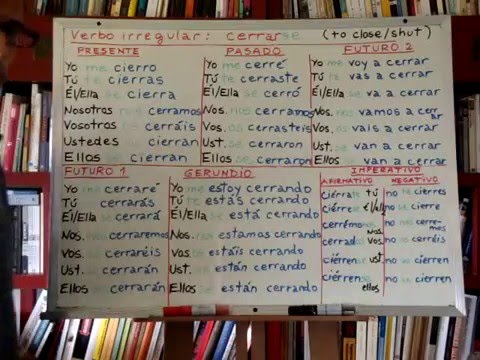 Verbo irregular: cerrarse (to close/shut)
PRESENTE
Yo me cierro
Tú te cierras
Él/Ella se cierra
Nosotros nos cerramos
Vosotros os cerráis
Ustedes se cierran
Ellos se cierran
PASADO
Yo me cerré
Tú te cerraste
Él/Ella se cerró
Nos. nos cerramos
Vos. os cerrasteis
Ust. se cerraron
Ellos se cerraron
FUTURO 2
Yo me voy a cerrar
Tú te vas a cerrar
Él/Ella se va a cerrar
Nos. nos vamos a cerrar
Vos. os vais a cerrar
Ust. se van a cerrar
Ellos se van a cerrar
FUTURO 1
Yo me cerraré
Tú te cerrarás
Él/Ella se cerrará
Nos. nos cerraremos
Vos. os cerraréis
Ust. se cerrarán
Ellos se cerrarán
GERUNDIO
Yo me estoy cerrando
Tú te estás cerrando
Él/Ella se está cerrando
Nos. nos estamos cerrando
Vos. os estáis cerrando
Ust. se están cerrando
Ellos se están cerrando
IMPERATIVO
AFIRMATIVO
ciérrate tú
ciérrese él/ella
cerrémonos Nos.
cerrados Vos.
ciérrense ust
ciérrense ellos
NEGATIVO
no te cierres
no se cierre
no nos cerremos
no os cerréis
no se cierren
no se cierren